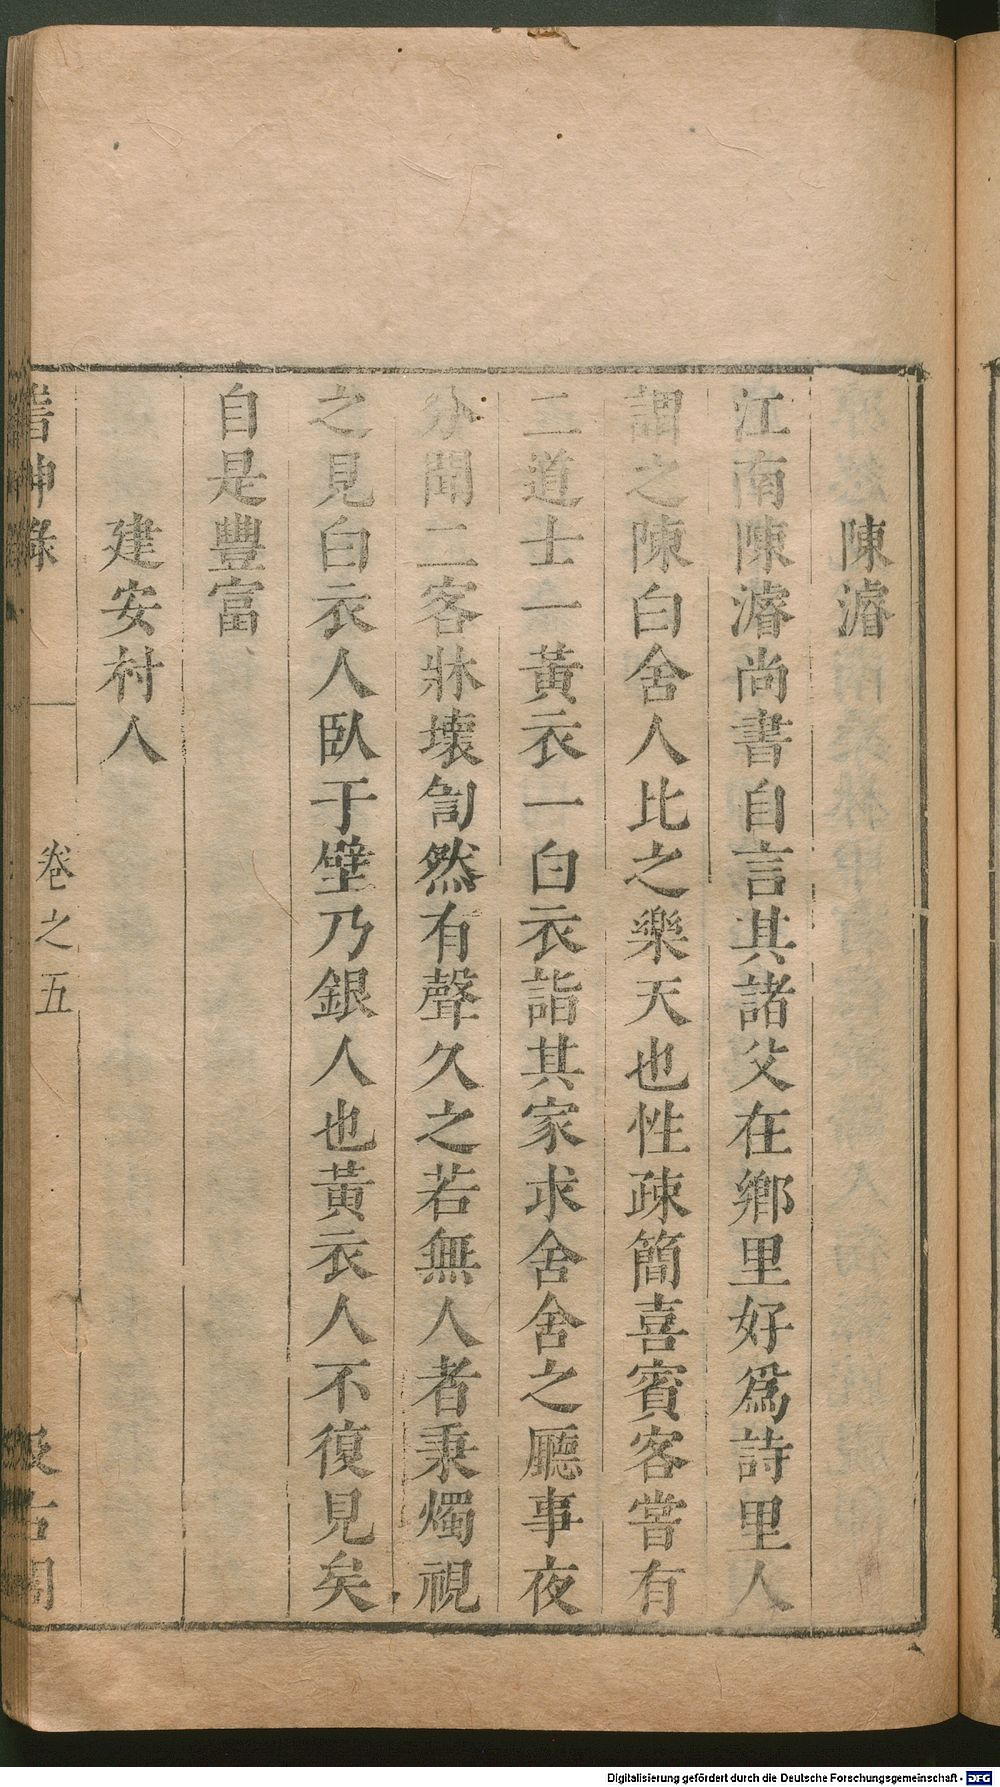 陳濬
江南陳濬尚書自言其諸父在鄉里好爲詩里人
謂之陳白舍人比之樂天也性疎簡喜賓客嘗有
二道士一黃衣一白衣詣其家求舍舍之廳事夜
分聞二客牀壞訇然有聲久之若無人者秉燭視
之見白衣人臥于壁乃銀人也黃衣人不復見矣
自是豐富
建安村人
神錄
卷之五
古閣
Digitalisierung gefördert durch die Deutsche Forschungsgemeinschaft - DFG